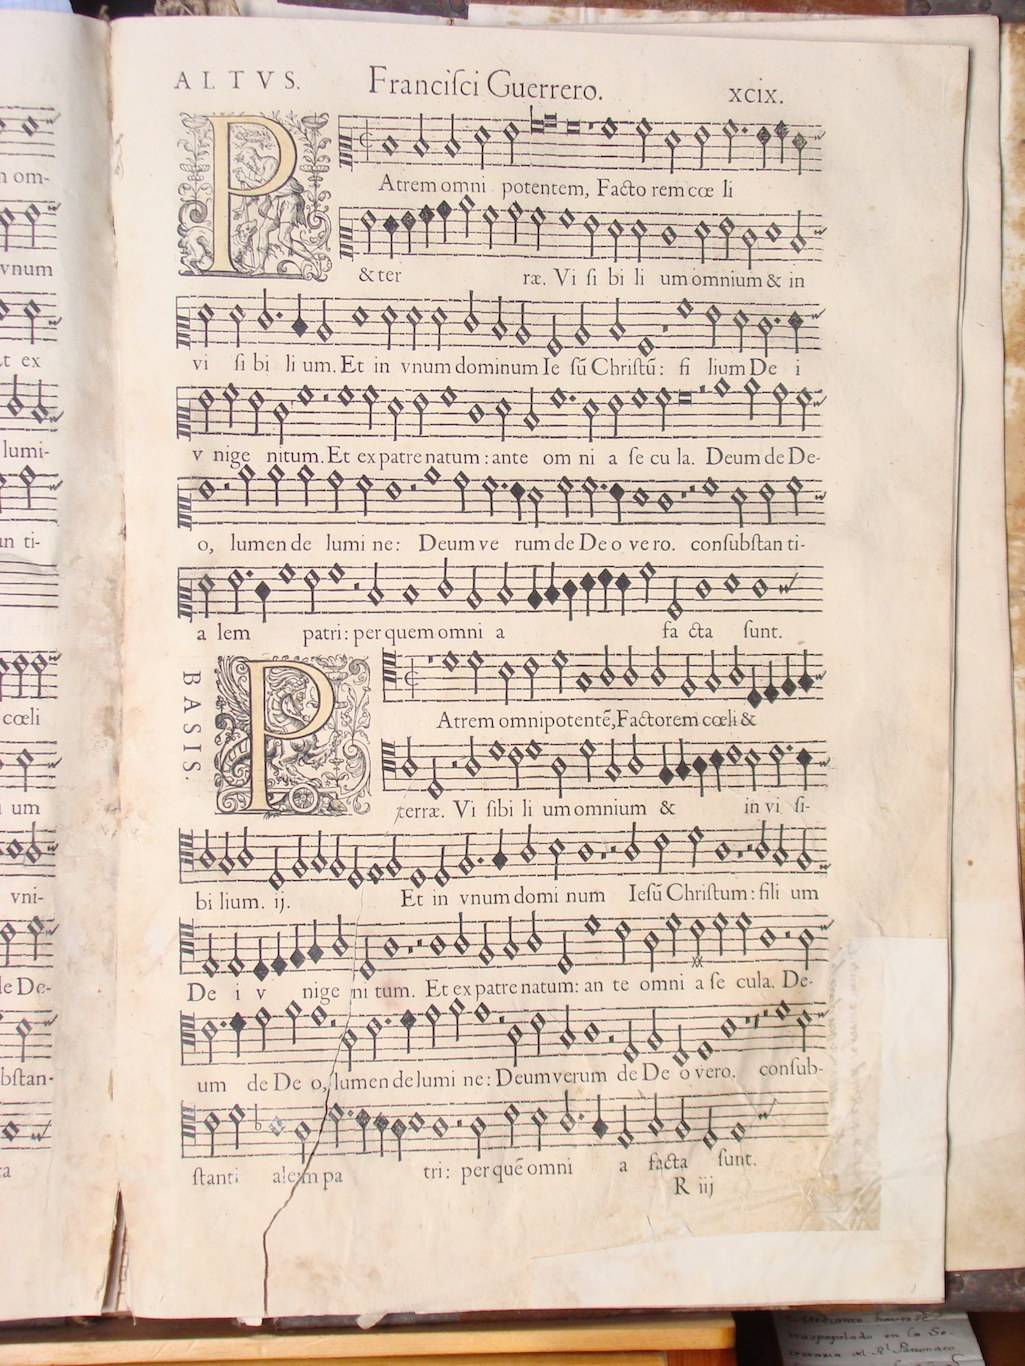 ALTVS. Franciſci Guerrero. xcix.
P
Atrem omni potentem, Facto rem cœ li
& ter ræ. Vi ſi bi li um omnium & in
vi ſi bi li um. Et in vnum dominum Ie ſū Chriſtū: fi lium De i
v nige nitum. Et ex patre natum: ante om ni a ſe cu la. Deum de De-
o, lumen de lumi ne: Deum ve rum de De o ve ro. conſubſtan ti-
a lem patri: per quem omni a fa cta ſunt.
BASIS.
P
Atrem omnipotentē, Factorem cœli &
terræ. Vi ſibi li um omnium & in vi ſi-
bi lium. ij. Et in vnum domi num Ieſū Chriſtum: fili um
De i v nige ni tum. Et ex patre natum: an te omni a ſe cula. De-
um de De o, lumen de lumi ne: Deum verum de De o vero. conſub-
ſtanti alem pa tri: per quē omni a facta ſunt.
R iij
n om-
vnum
Et ex
lumi-
an ti-
cœli
um
vni-
de De-
bſtan-
ta